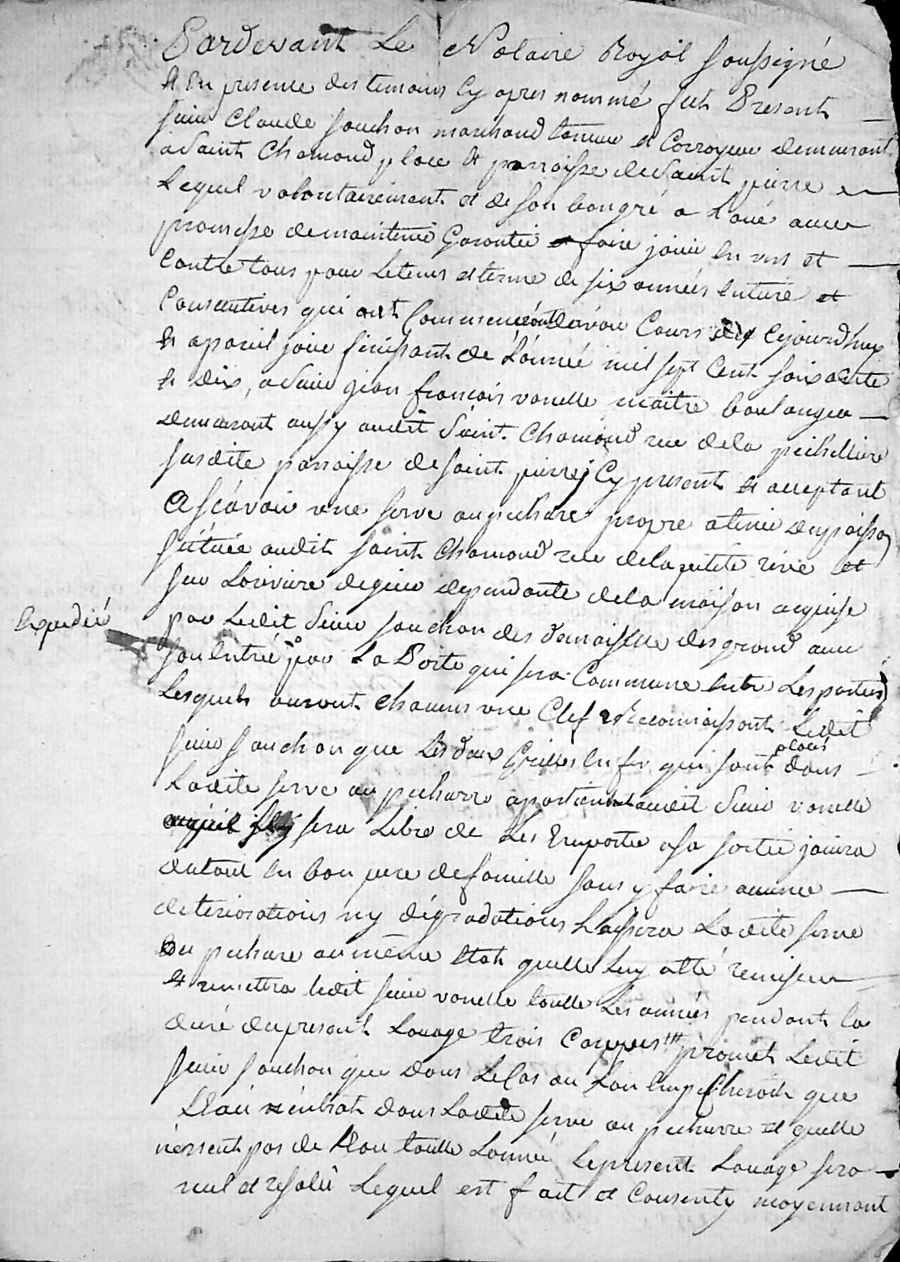 Pardevant Le Notaire Royal soussigné
& En presence des temoins Cy apres nommé fut Present
sieur Claude souchon marchand tanneur et Corroyeur demeurant
a Saint Chamond place & parroisse de Saint pierre
Lequel volontairement et de son bongré a Loué avec
promesse de maintenir Garentir et faire jouir En vers et
Contre tous pour Le tems et terme de six années Entiere et
Consecutives qui ont Commencé Cours Cejourdhuy
& a pareil jour finissant de Lannée mil sept Cent soixante
& dix, a sieur jean francois vanelle maitre boulanger
demeurant aussy audit Saint Chamond rue de la
susdite parroisse de saint pierre Cy present & acceptant
A scavoir une serve ou pechare propre a tenir du poisson
scituée audit saint Chamond rue de la petite rive et
sur La riviere de gier dependante de la maison acquise
Expedié
par Ledit Sieur souchon des damoiselle des grand avec
son Entrée par La Porte qui sera Commune Entre Les parties
Lesquels auront chacuns une Clef Reconnaissant Ledit
sieur souchon que Les deux Grilles En fer qui sont placés dans
Ladite serve ou pecharre apartient audit Sieur vanelle
sera Libre de Les Emporter a sa sortie jouira
du tout En bon pere de famille sans y faire aucune
deteriorations ny dégradations Laissera Ladite serve
ou pechare au même Etat quelle Luy a été remise
& remettra ledit sieur vanelle toutte Les années pendant la
duré du present Louage trois Carpes promet Ledit
sieur souchon que dans Le Cas ou Lon Empecheroit que
LEau n'éntrat dans Ladite serve ou pecharre et quelle
n'eussent pas de LEau toutte Lannée Le present Louage sera
nul et resolu Lequel est fait et Consenty moyennant